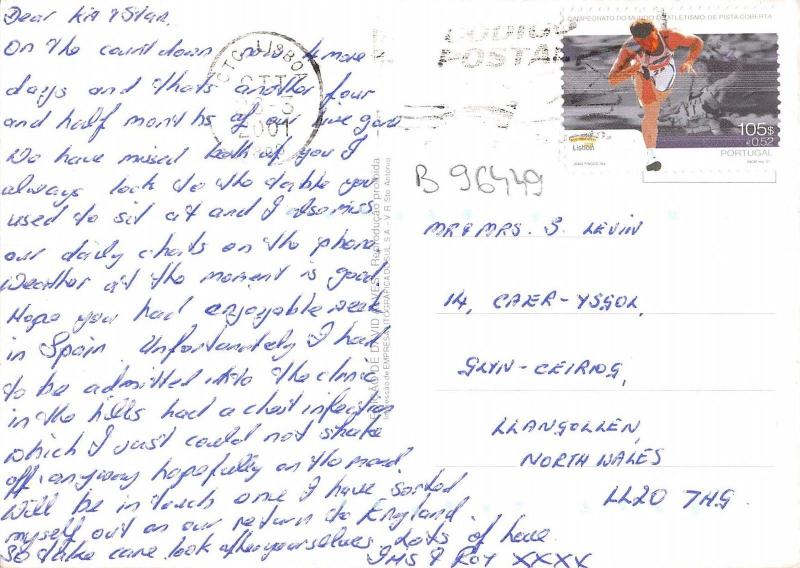 Dear Kit & Stan.
On the countdown now 4 more
days and thats another four
and half months of our lives gone
We have missed both of you I
always look to the table you
used to sit at and I also miss
our daily chats on the phone
Weather at the moment is good
Hope you had enjoyable week
in Spain. Unfortunately I had
to be admitted into the clinic
in the hills had a chest infection
which I just could not shake
off, anyway hopefully on the mend
Will be in touch once I have sorted
myself out on our return to England
so take care look after yourselves Lots of love
& Roy XXXX
CTC LISBOA
CTT
2001
CÓDIGO
POSTAL
CAMPEONATO DO MUNDO DE ATLETISMO DE PISTA COBERTA
105$
€0,52
PORTUGAL
Lisbon
B 96449
MR & MRS. S. LEVIN
14, CAER-YSGOL,
GLYN-CEIRIOG,
LLANGOLLEN,
NORTH WALES
LL20 7HG.
EDIÇÃO DE DAVID Reprodução proibida
Impressão de EMPRESA LITOGRÁFICA DO SUL, S.A. - V. R. Sto. António